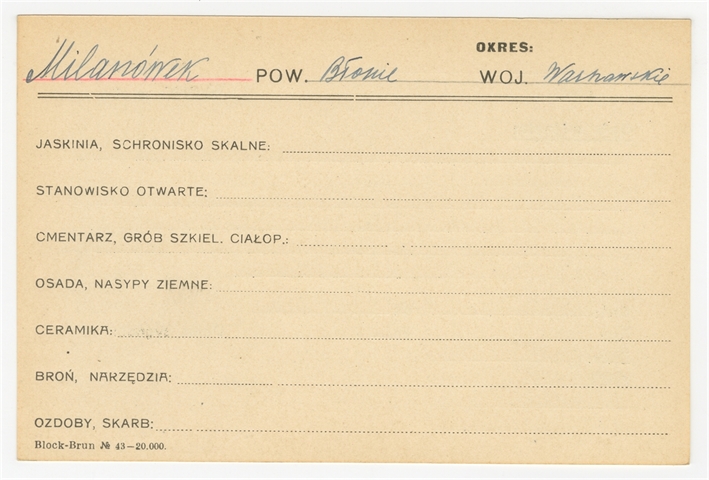 OKRES:
Milanówek POW. Błonie WOJ. Warszawskie
JASKINIA, SCHRONISKO SKALNE:
STANOWISKO OTWARTE:
CMENTARZ, GRÓB SZKIEL. CIAŁOP.:
OSADA, NASYPY ZIEMNE:
CERAMIKA:
BROŃ, NARZĘDZIA:
OZDOBY, SKARB:
Block-Brun № 43—20.000.